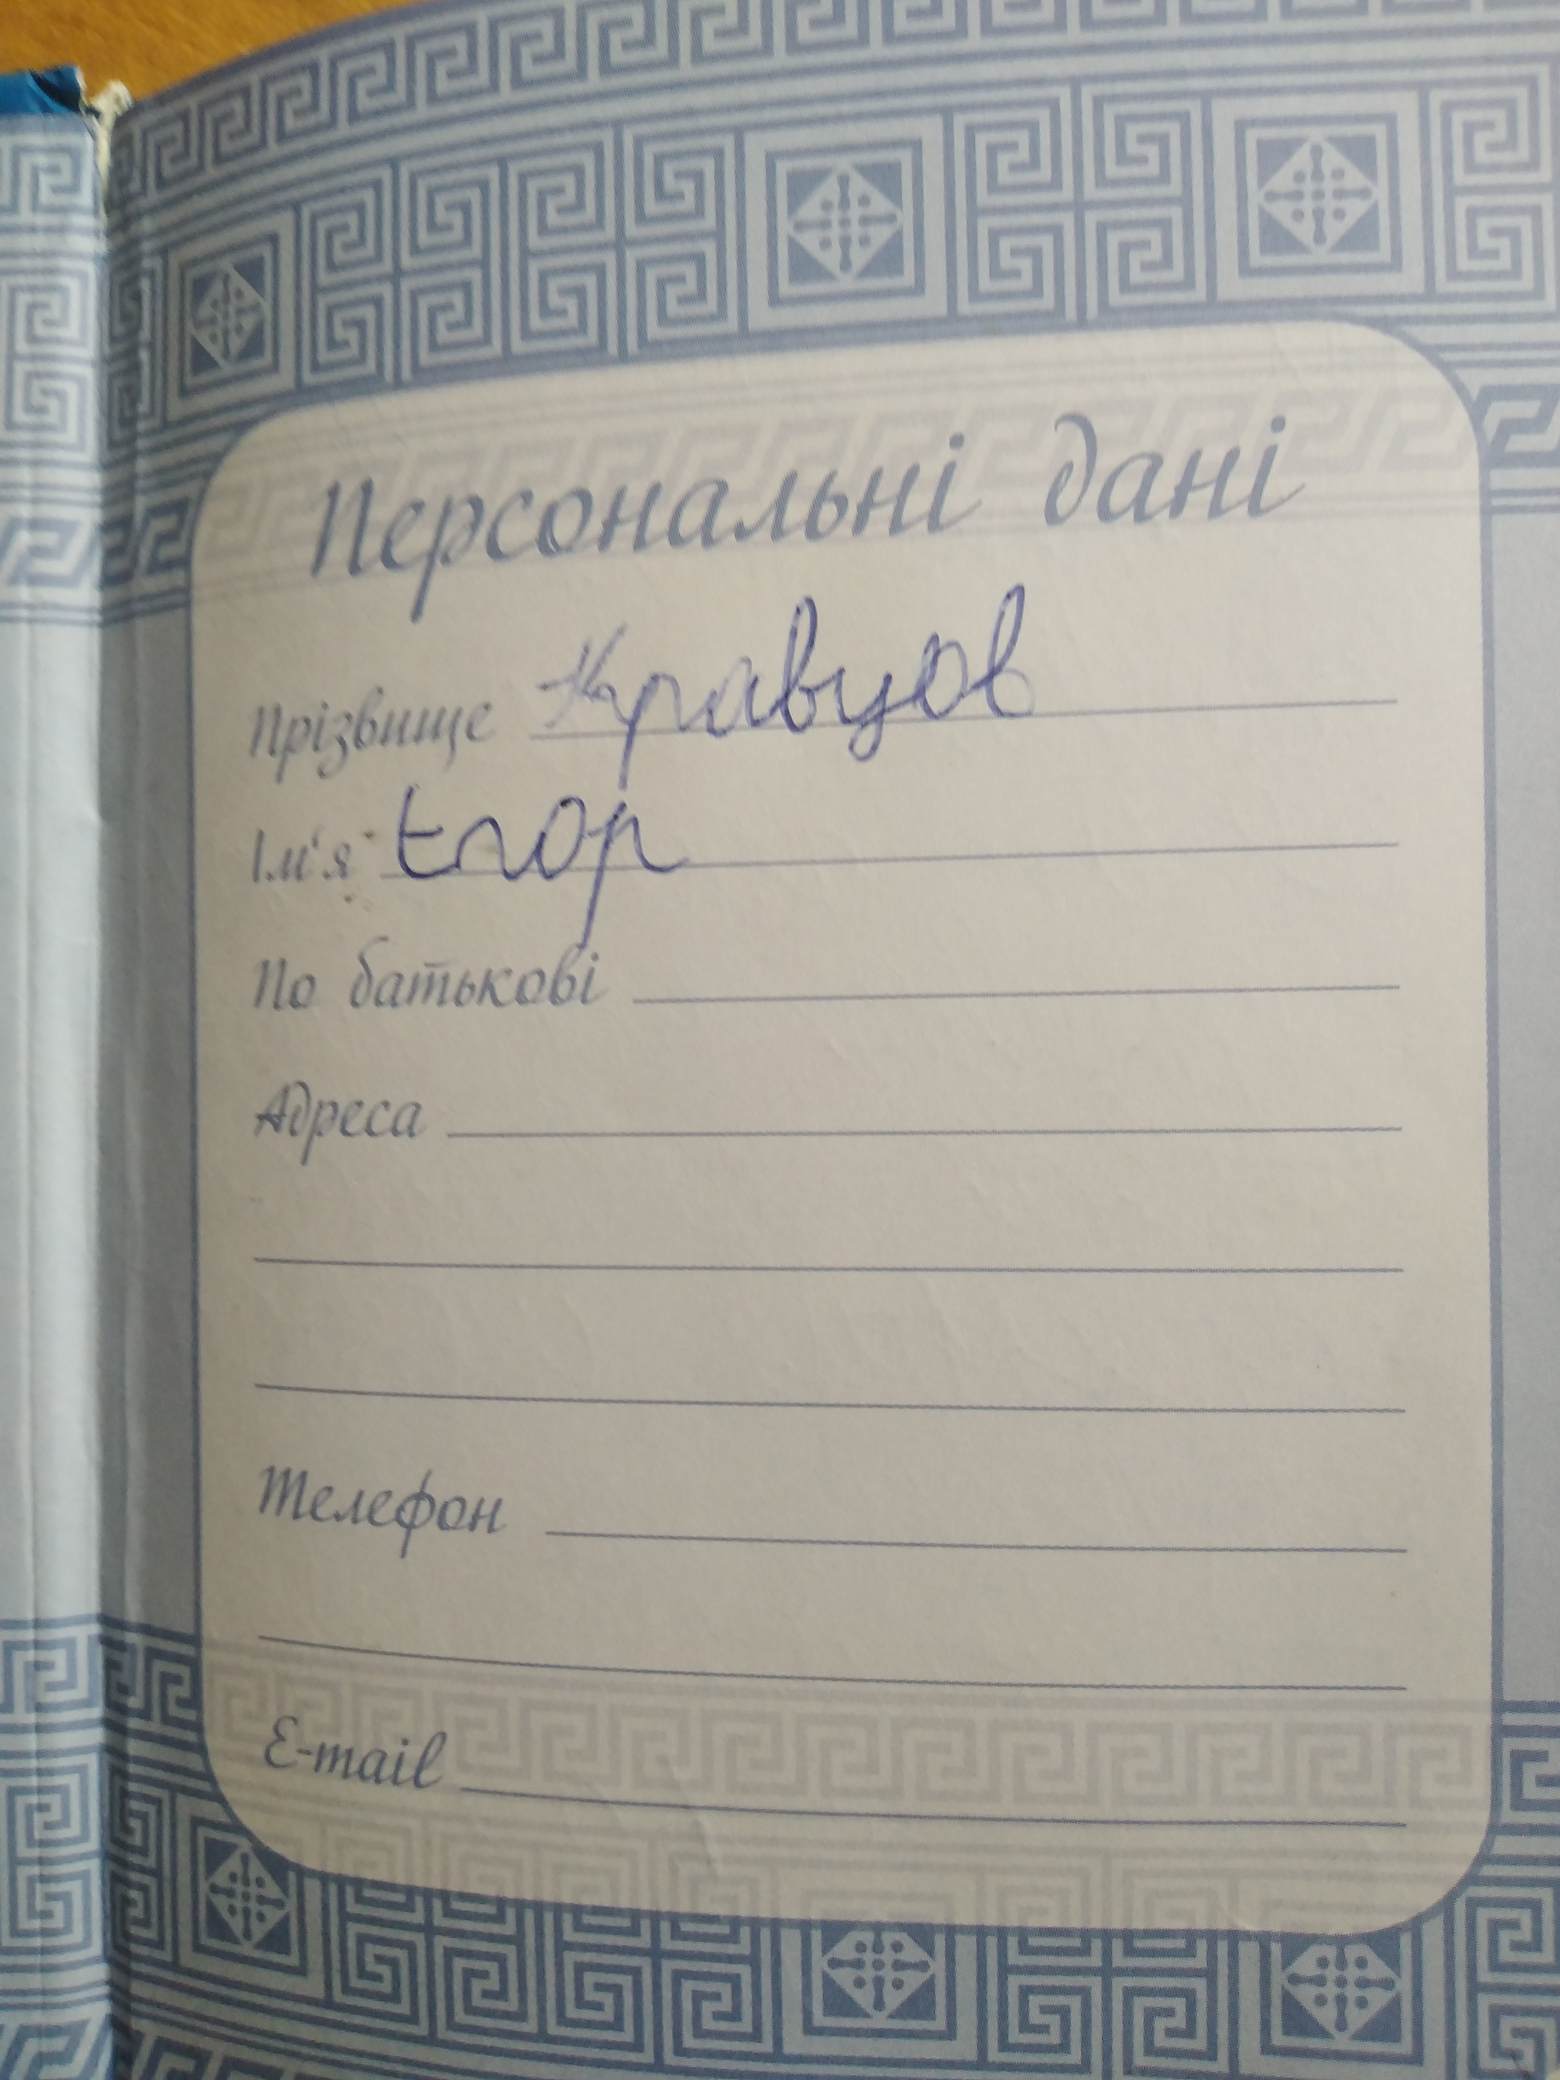 Персональні дані
Прізвище Кравцов
Ім'я Егор
По батькові
Адреса
Телефон
E-mail